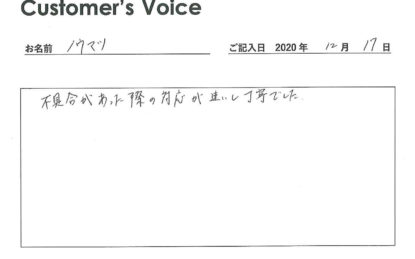 Customer's Voice
お名前 ノウマツ ご記入日 2020 年 12 月 17 日
不具合があった際の対応が速いし丁寧でした